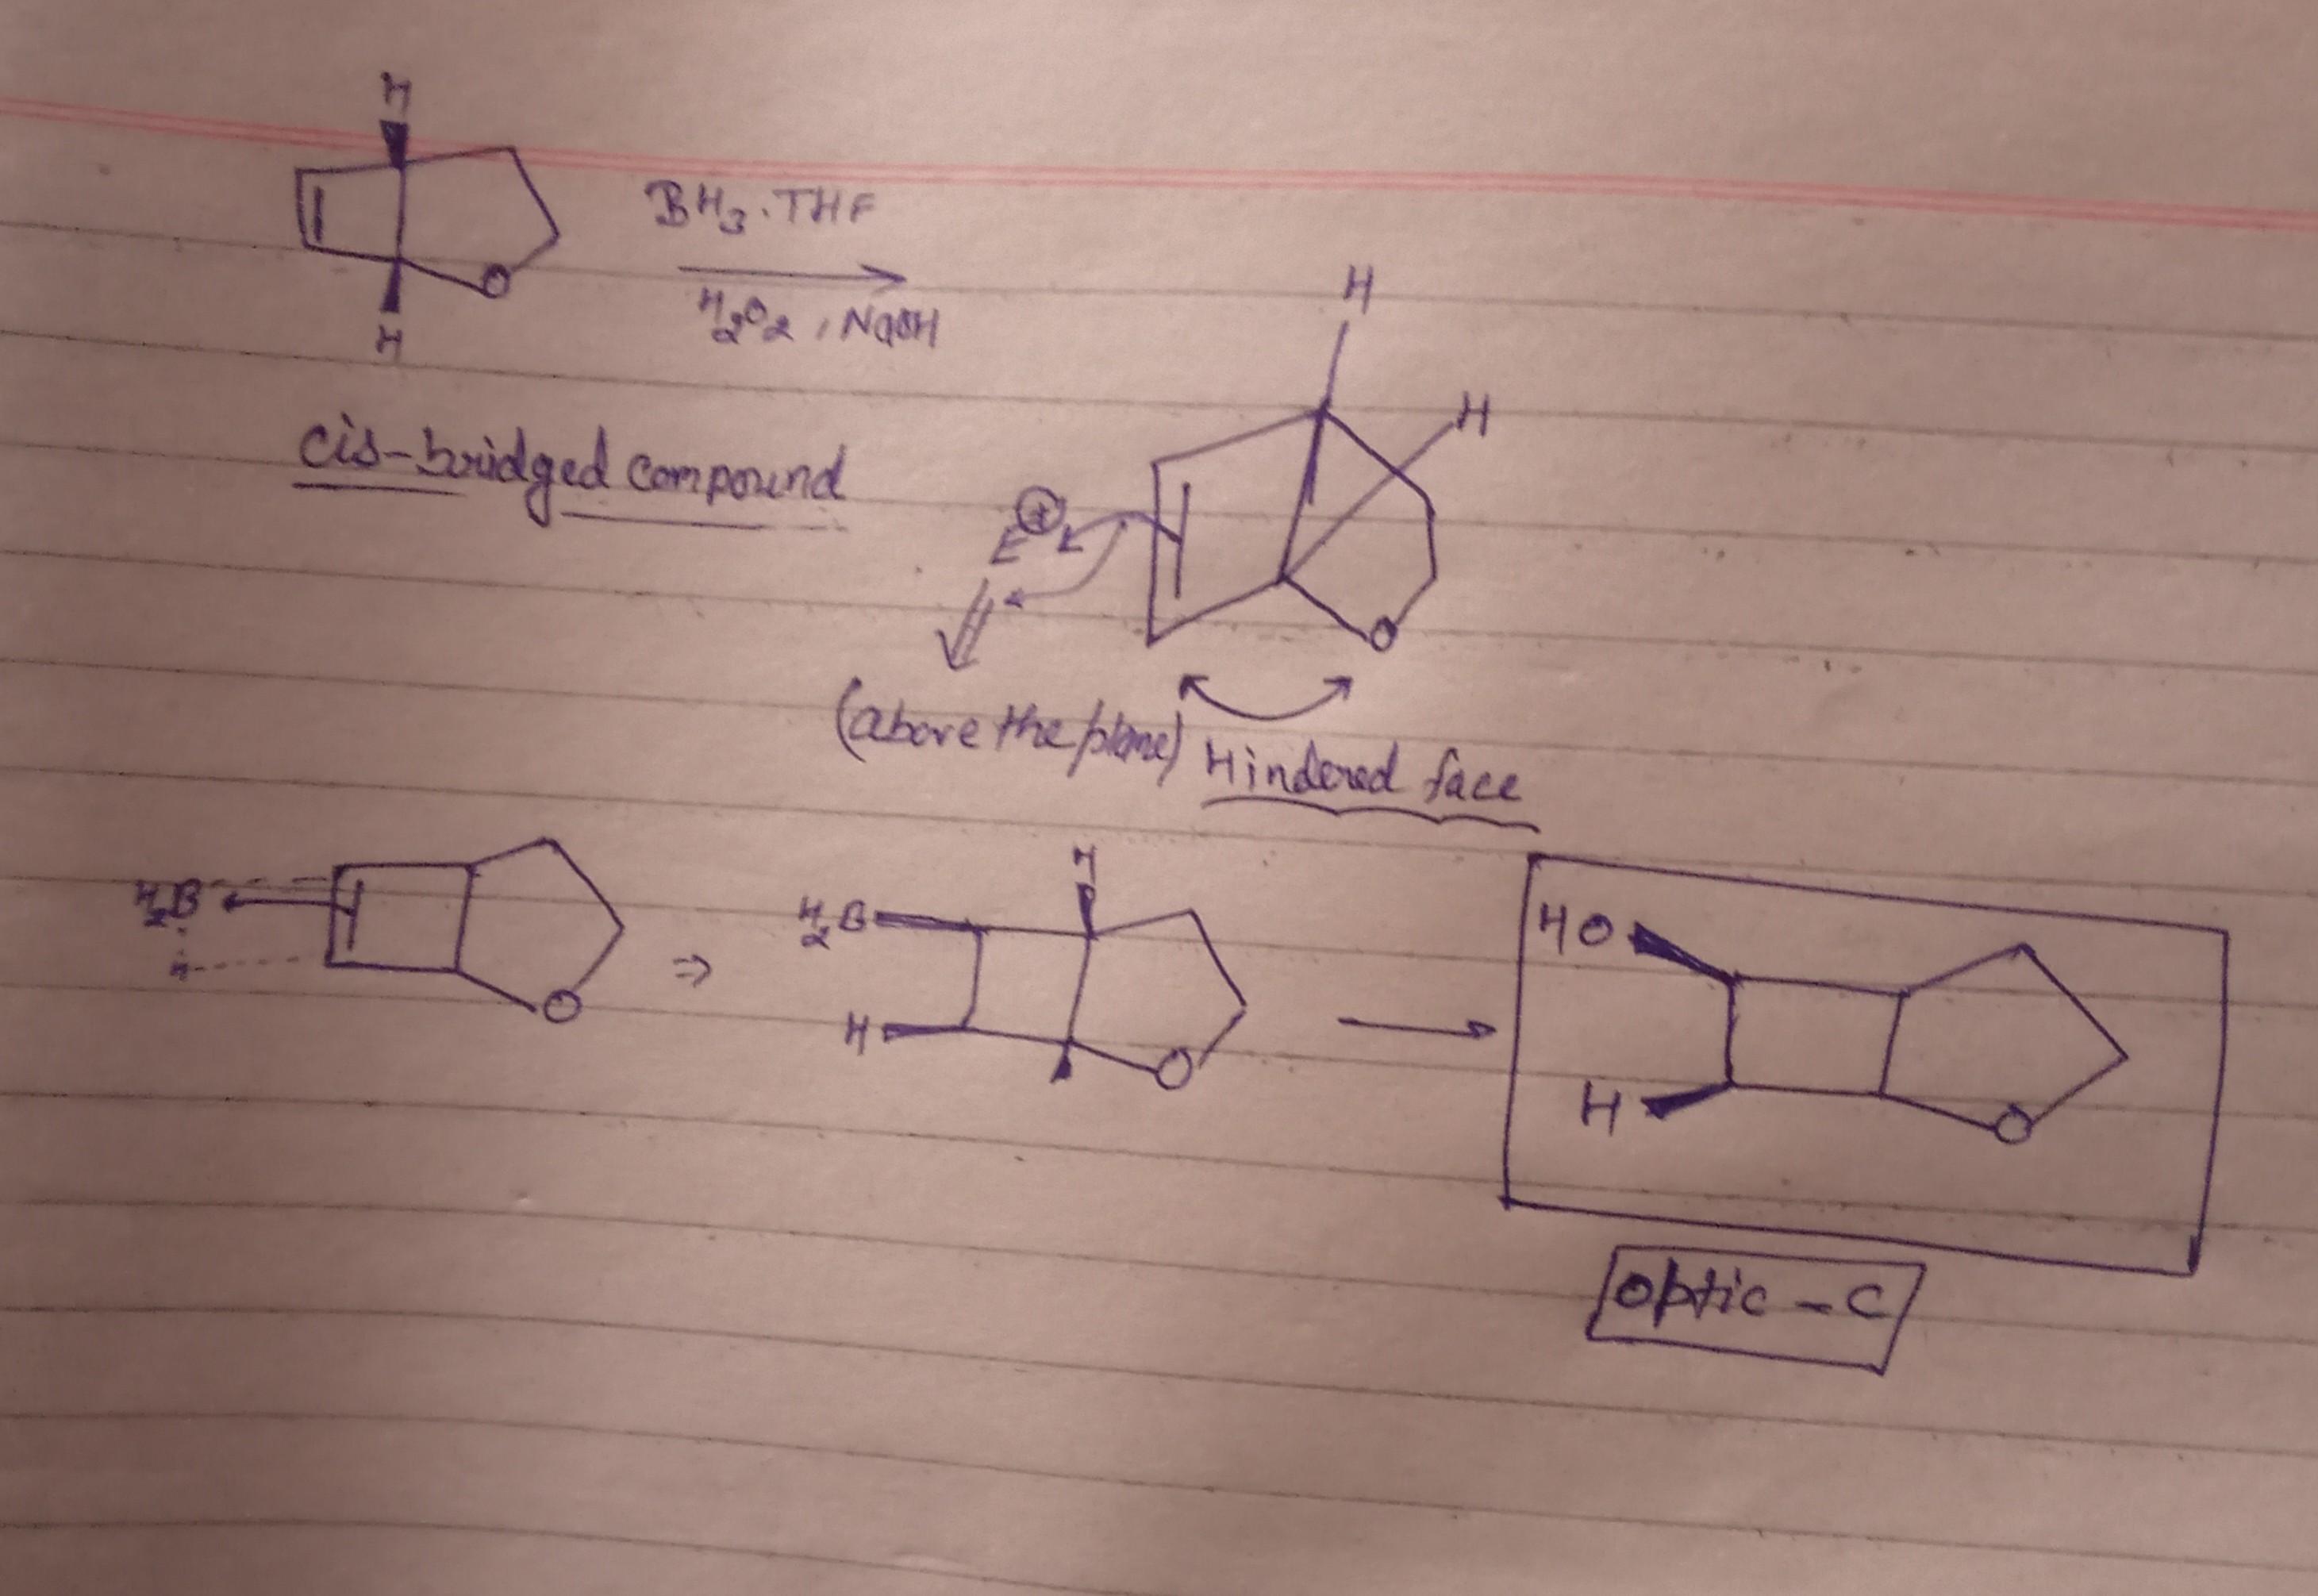 H
BH3.THF
O
H2O2, NaOH
H
H
cis-bridged compound
H
E⊕
O
(above the plane)
Hindered face
H2B
H
O
H
H2B
H
O
HO
H
O
Optic - C